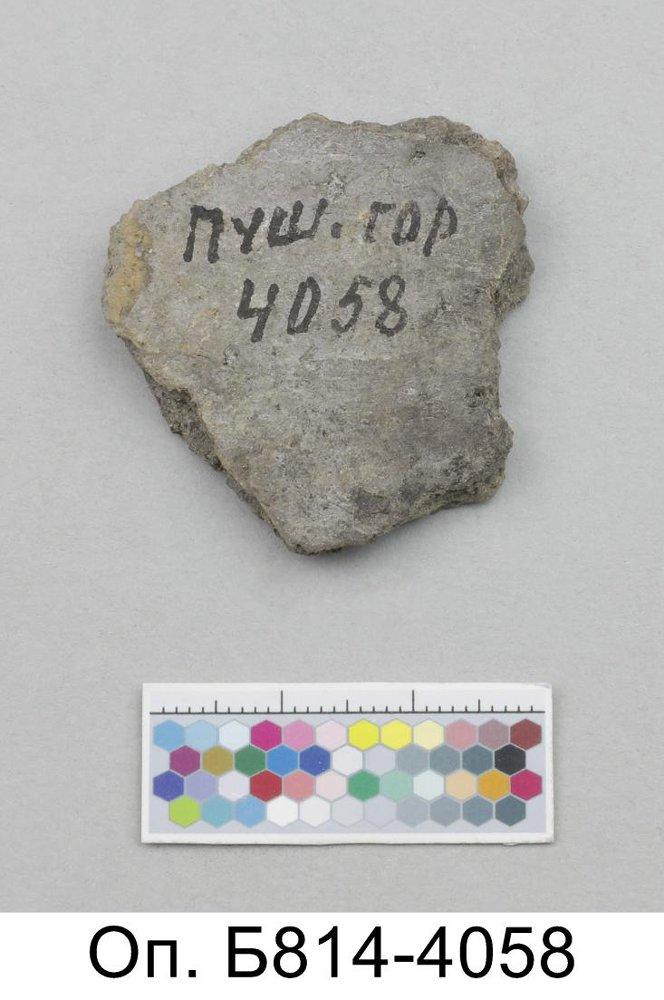 ПУШ. ГОР
4058
Оп. Б814-4058